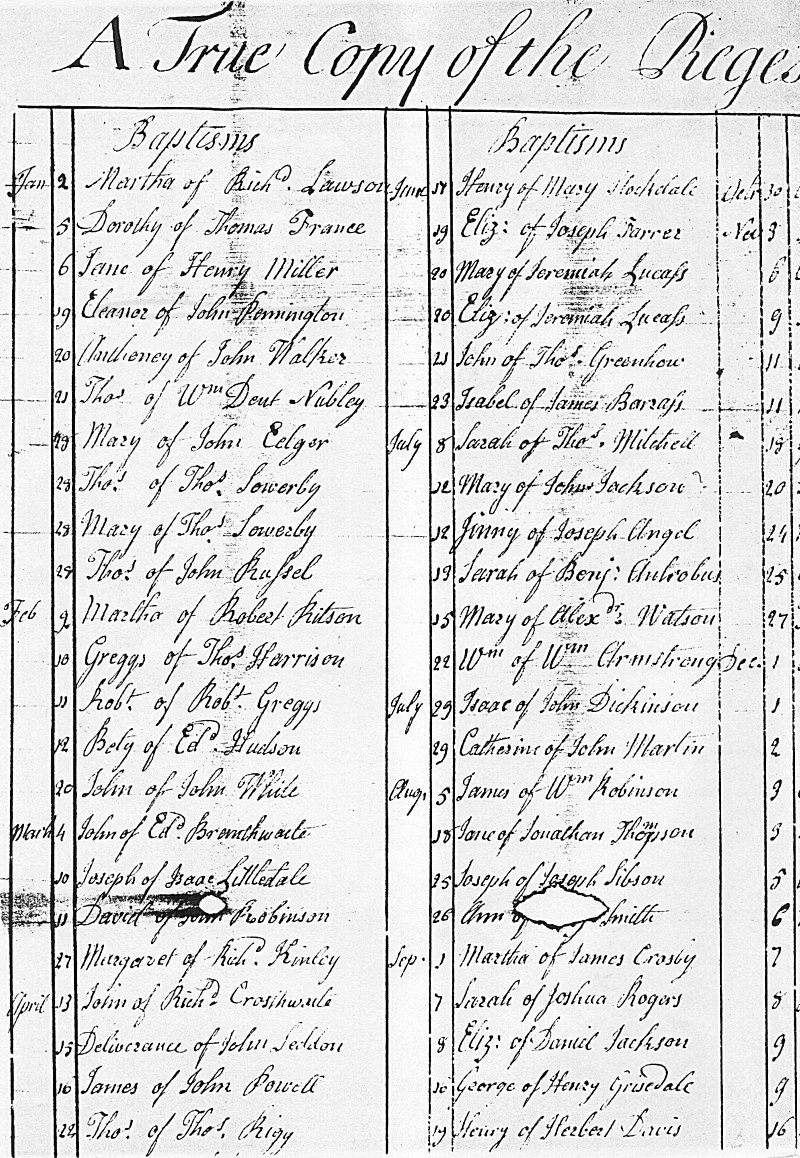 A True Copy of the Reges
Baptisms
Jan 2 Martha of Rich.d Lawson
5 Dorothy of Thomas France
6 Jane of Henry Miller
19 Eleanor of John Pennington
20 Antheney of John Walker
21 Thos of Wm Dent Nubley
28 Mary of John Edger
28 Thos. of Thos. Sowerby
28 Mary of Thos. Sowerby
28 Thos. of John Russel
Feb 9 Martha of Robert Ritson
10 Greggs of Thos. Harrison
11 Robt. of Robt. Greggs
12 Bety of Edd. Hudson
20 John of John White
March 4 John of Edd. Brenthwaite
10 Joseph of Isaac Littledale
11 David of John Robinson
27 Margaret of Richd. Kinley
April 13 John of Richd. Crosthwaite
15 Deliverance of John Seddon
16 James of John Powell
22 Thos. of Thos. Rigy
Baptisms
June 17 Henry of Mary Stockdale
19 Eliz: of Joseph Farrer
20 Mary of Jeremiah Lucass
20 Eliz: of Jeremiah Lucass
21 John of Thos. Greenhow
23 Isabel of James Barrass
July 8 Sarah of Thos. Mitchell
12 Mary of John Jackson
12 Jinny of Joseph Angel
13 Sarah of Benj: Antrobus
15 Mary of Alexdr. Watson
22 Wm of Wm Armstrong
July 29 Isaac of John Dickinson
29 Catherine of John Martin
Aug. 5 James of Wm Robinson
18 Jane of Jonathan Thompson
25 Joseph of Joseph Sibson
26 Ann of Smith
Sep. 1 Martha of James Crosby
7 Sarah of Joshua Rogers
8 Eliz: of Daniel Jackson
10 George of Henry Grisedale
19 Henry of Herbert Davis
Octr 30
Nov 3
6
9
11
11
18
20
24
25
27
Dec. 1
1
2
3
3
5
6
7
8
9
9
16